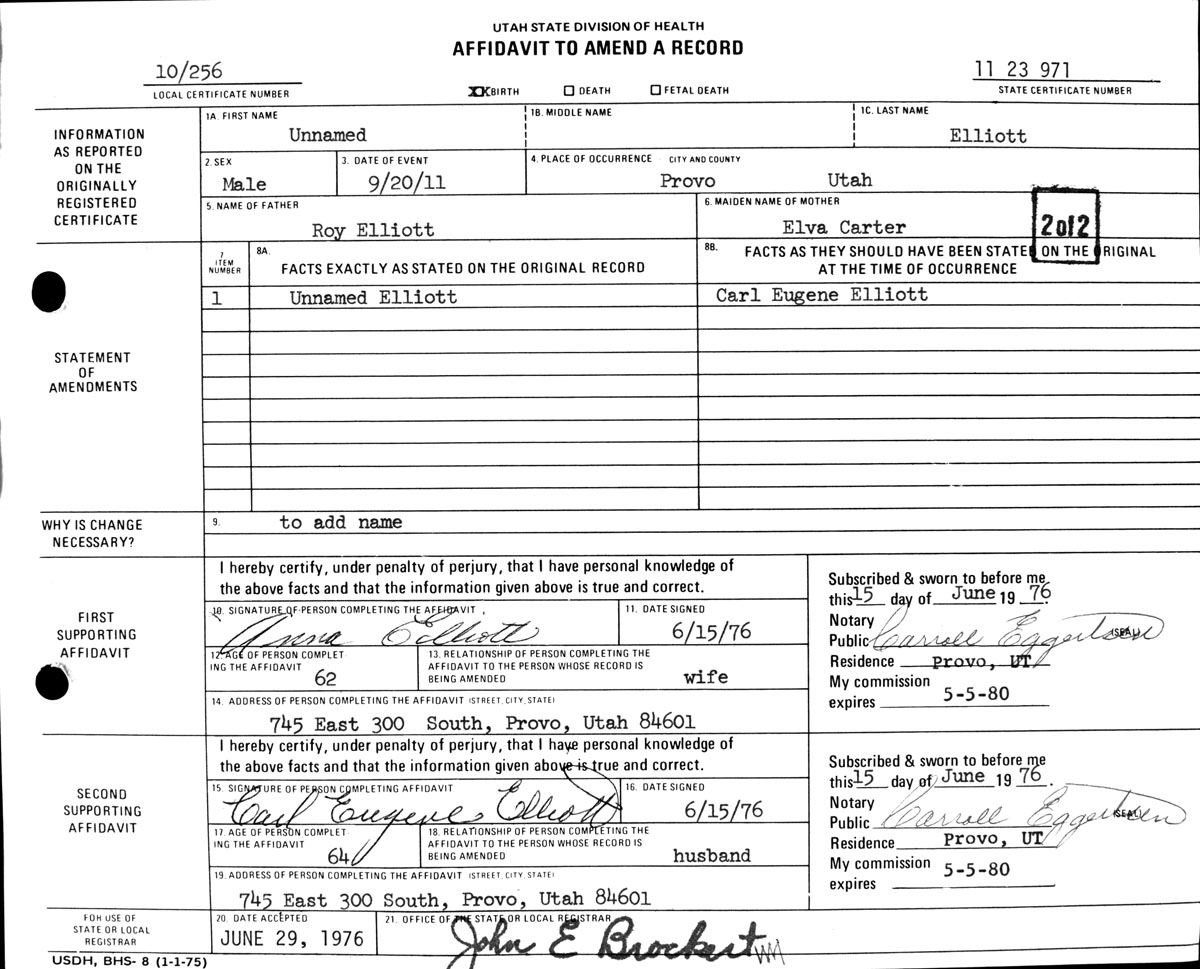 UTAH STATE DIVISION OF HEALTH
AFFIDAVIT TO AMEND A RECORD
10/256
LOCAL CERTIFICATE NUMBER
XX BIRTH ☐ DEATH ☐ FETAL DEATH
11 23 971
STATE CERTIFICATE NUMBER
INFORMATION
AS REPORTED
ON THE
ORIGINALLY
REGISTERED
CERTIFICATE
1A. FIRST NAME
Unnamed
1B. MIDDLE NAME
1C. LAST NAME
Elliott
2. SEX
Male
3. DATE OF EVENT
9/20/11
4. PLACE OF OCCURRENCE CITY AND COUNTY
Provo Utah
5. NAME OF FATHER
Roy Elliott
6. MAIDEN NAME OF MOTHER
Elva Carter
2 of 2
STATEMENT
OF
AMENDMENTS
7
ITEM
NUMBER
8A.
FACTS EXACTLY AS STATED ON THE ORIGINAL RECORD
8B. FACTS AS THEY SHOULD HAVE BEEN STATED ON THE ORIGINAL
AT THE TIME OF OCCURRENCE
1 Unnamed Elliott Carl Eugene Elliott
WHY IS CHANGE
NECESSARY?
9. to add name
FIRST
SUPPORTING
AFFIDAVIT
I hereby certify, under penalty of perjury, that I have personal knowledge of
the above facts and that the information given above is true and correct.
10. SIGNATURE OF PERSON COMPLETING THE AFFIDAVIT
Anna Elliott
11. DATE SIGNED
6/15/76
12. AGE OF PERSON COMPLET-
ING THE AFFIDAVIT
62
13. RELATIONSHIP OF PERSON COMPLETING THE
AFFIDAVIT TO THE PERSON WHOSE RECORD IS
BEING AMENDED
wife
14. ADDRESS OF PERSON COMPLETING THE AFFIDAVIT (STREET, CITY, STATE)
745 East 300 South, Provo, Utah 84601
Subscribed & sworn to before me
this 15 day of June 19 76.
Notary
Public Carroll Eggertsen (SEAL)
Residence Provo, UT
My commission
expires 5-5-80
SECOND
SUPPORTING
AFFIDAVIT
I hereby certify, under penalty of perjury, that I have personal knowledge of
the above facts and that the information given above is true and correct.
15. SIGNATURE OF PERSON COMPLETING AFFIDAVIT
Carl Eugene Elliott
16. DATE SIGNED
6/15/76
17. AGE OF PERSON COMPLET-
ING THE AFFIDAVIT
64
18. RELATIONSHIP OF PERSON COMPLETING THE
AFFIDAVIT TO THE PERSON WHOSE RECORD IS
BEING AMENDED
husband
19. ADDRESS OF PERSON COMPLETING THE AFFIDAVIT (STREET, CITY, STATE)
745 East 300 South, Provo, Utah 84601
Subscribed & sworn to before me
this 15 day of June 19 76.
Notary
Public Carroll Eggertsen (SEAL)
Residence Provo, UT
My commission
expires 5-5-80
FOR USE OF
STATE OR LOCAL
REGISTRAR
20. DATE ACCEPTED
JUNE 29, 1976
21. OFFICE OF THE STATE OR LOCAL REGISTRAR
John E Brockert
USDH, BHS- 8 (1-1-75)